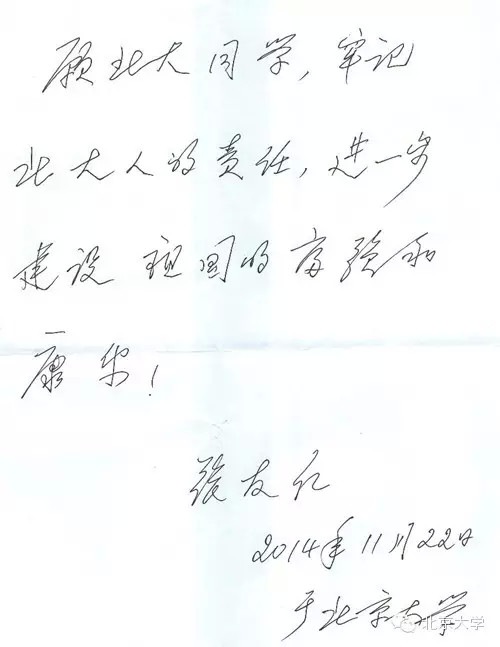 愿北大同学,牢记
北大人的责任,进一步
建设祖国的富强和
康乐!
张友仁
2014年11月22日
于北京大学
北京大学